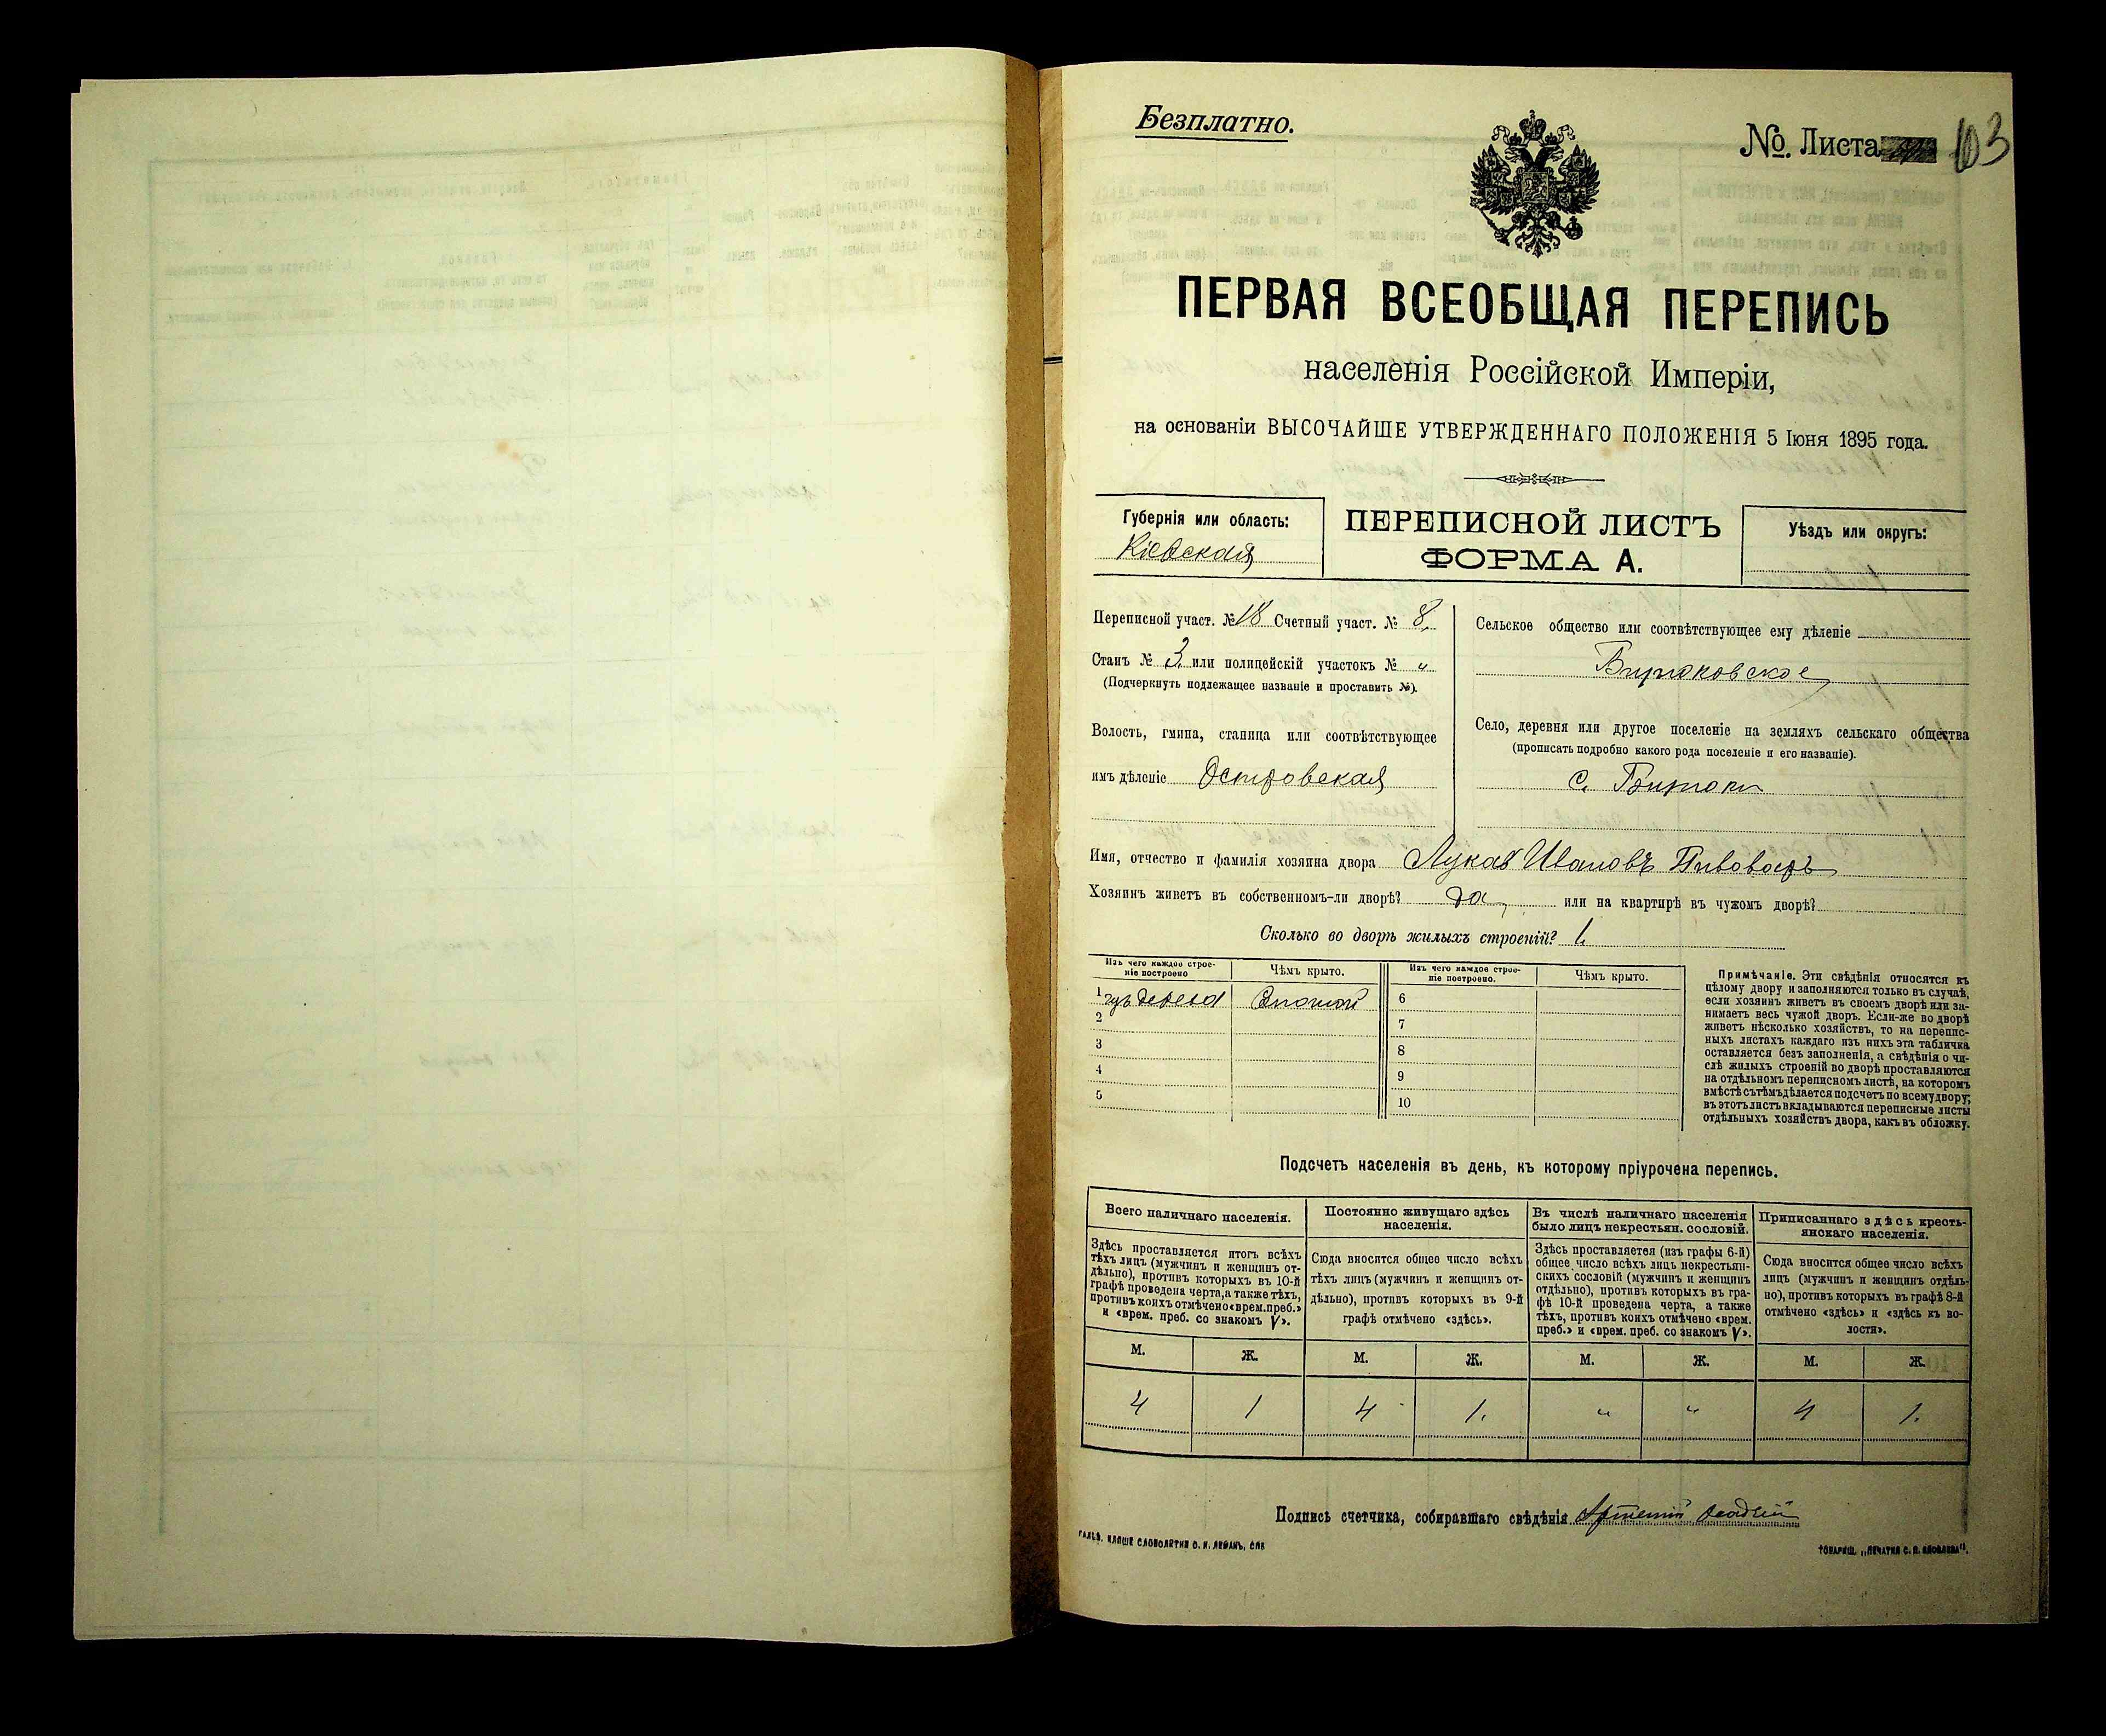 Безплатно.
№. Листа 103
ПЕРВАЯ ВСЕОБЩАЯ ПЕРЕПИСЬ
населенія Россійской Имперіи,
на основаніи ВЫСОЧАЙШЕ УТВЕРЖДЕННАГО ПОЛОЖЕНІЯ 5 Іюня 1895 года.
Губернія или область:
Кіевская
ПЕРЕПИСНОЙ ЛИСТЪ
ФОРМА А.
Уѣздъ или округъ:
Переписной участ. № 18 Счетный участ. № 8.
Станъ № 3. или полицейскій участокъ № „
(Подчеркнуть подлежащее названіе и проставить №).
Волость, гмина, станица или соотвѣтствующее
имъ дѣленіе Островская
Сельское общество или соотвѣтствующее ему дѣленіе
Бирюковское
Село, деревня или другое поселеніе на земляхъ сельскаго общества
(прописать подробно какого рода поселеніе и его названіе).
с. Бирюки
Имя, отчество и фамилія хозяина двора Лукаъ Ивановъ Пивоваръ
Хозяинъ живетъ въ собственномъ-ли дворѣ? да, или на квартирѣ въ чужомъ дворѣ?
Сколько во дворѣ жилыхъ строеній? 1.
Изъ чего каждое строе-
ніе построено
Чѣмъ крыто.
Изъ чего каждое строе-
ніе построено.
Чѣмъ крыто.
1 изъ дерева
2
3
4
5
6
7
8
9
10
Примѣчаніе. Эти свѣдѣнія относятся къ
цѣлому двору и заполняются только въ случаѣ,
если хозяинъ живетъ въ своемъ дворѣ или за-
нимаетъ весь чужой дворъ. Если-же во дворѣ
живетъ нѣсколько хозяйствъ, то на перепис-
ныхъ листахъ каждаго изъ нихъ эта табличка
оставляется безъ заполненія, а свѣдѣнія о чи-
слѣ жилыхъ строеній во дворѣ проставляются
на отдѣльномъ переписномъ листѣ, на которомъ
вмѣстѣ съ тѣмъ дѣлается подсчетъ по всему двору;
въ этотъ листъ вкладываются переписные листы
отдѣльныхъ хозяйствъ двора, какъ въ обложку.
Подсчетъ населенія въ день, къ которому пріурочена перепись.
Всего наличнаго населенія.
Здѣсь проставляется итогъ всѣхъ
тѣхъ лицъ (мужчинъ и женщинъ от-
дѣльно), противъ которыхъ въ 10-й
графѣ проведена черта, а также тѣхъ,
противъ коихъ отмѣчено «врем. преб.»
и «врем. преб. со знакомъ V».
Постоянно живущаго здѣсь
населенія.
Сюда вносится общее число всѣхъ
тѣхъ лицъ (мужчинъ и женщинъ от-
дѣльно), противъ которыхъ въ 9-й
графѣ отмѣчено «здѣсь».
Въ числѣ наличнаго населенія
было лицъ некрестьян. сословій.
Здѣсь проставляется (изъ графы 6-й)
общее число всѣхъ лицъ некрестьян-
скихъ сословій (мужчинъ и женщинъ
отдѣльно), противъ которыхъ въ гра-
фѣ 10-й проведена черта, а также
тѣхъ, противъ коихъ отмѣчено «врем.
преб.» и «врем. преб. со знакомъ V».
Приписаннаго здѣсь кресть-
янскаго населенія.
Сюда вносится общее число всѣхъ
лицъ (мужчинъ и женщинъ отдѣль-
но), противъ которыхъ въ графѣ 8-й
отмѣчено «здѣсь» и «здѣсь къ во-
лости».
М. Ж. М. Ж. М. Ж. М. Ж.
4 1 4 1. „ „ 4 1.
Подпись счетчика, собиравшаго свѣдѣнія Артемій
ГАЛЬВ. КЛИШЕ СЛОВОЛИТНИ О. И. ЛЕМАНЪ, СПБ
ТОВАРИЩ. „ПЕЧАТНЯ С. П. ЯКОВЛЕВА".